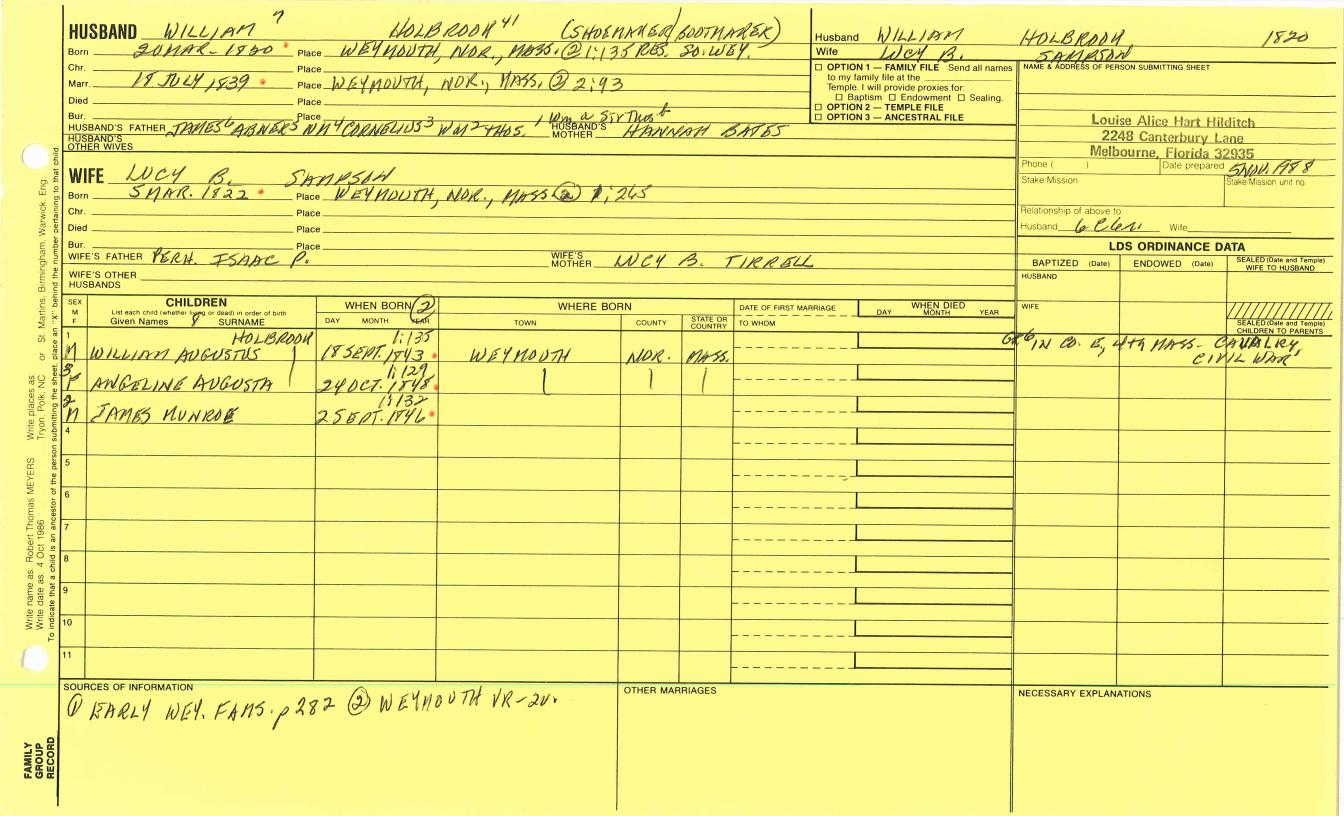 HUSBAND WILLIAM 7 HOLBROOK 41 (SHOEMAKER/BOOTMAKER)
Born 20 MAR. 1820 Place WEYMOUTH, NOR., MASS. ② 1:135 RES. SO. WEY.
Chr. Place
Marr. 18 JULY 1839 Place WEYMOUTH, NOR., MASS. ② 2:93
Died Place
Bur. Place
HUSBAND'S FATHER JAMES6 ABNER5 NM4 CORNELIUS3 WM2 THOS. 1 HUSBAND'S MOTHER HANNAH BATES
HUSBAND'S OTHER WIVES
WIFE LUCY B. SAMPSON
Born 5 MAR. 1822 Place WEYMOUTH, NOR., MASS ② 1:265
Chr. Place
Died Place
Bur. Place
WIFE'S FATHER PERH. ISAAC P. WIFE'S MOTHER LUCY B. TIRRELL
WIFE'S OTHER HUSBANDS
Husband WILLIAM HOLBROOK 1820
Wife LUCY B. SAMPSON
☐ OPTION 1 — FAMILY FILE Send all names
to my family file at the
Temple. I will provide proxies for:
☐ Baptism ☐ Endowment ☐ Sealing.
☐ OPTION 2 — TEMPLE FILE
☐ OPTION 3 — ANCESTRAL FILE
NAME & ADDRESS OF PERSON SUBMITTING SHEET
Louise Alice Hart Hilditch
2248 Canterbury Lane
Melbourne, Florida 32935
Phone ( ) Date prepared 5 NOV. 1988
Stake/Mission Stake/Mission unit no.
Relationship of above to:
Husband Wife
LDS ORDINANCE DATA
BAPTIZED (Date) ENDOWED (Date) SEALED (Date and Temple) WIFE TO HUSBAND
HUSBAND
WIFE
SEALED (Date and Temple) CHILDREN TO PARENTS
SEX M F
CHILDREN
List each child (whether living or dead) in order of birth
Given Names 8 SURNAME
WHEN BORN ②
DAY MONTH YEAR
WHERE BORN
TOWN COUNTY STATE OR COUNTRY
DATE OF FIRST MARRIAGE
TO WHOM
WHEN DIED
DAY MONTH YEAR
1 HOLBROOK 1:135
M WILLIAM AUGUSTUS 18 SEPT. 1843 WEYMOUTH NOR. MASS.
IN CO. E, 4TH MASS. CAVALRY,
CIVIL WAR
3 1:129
F ANGELINE AUGUSTA 24 OCT. 1848
2 1:132
M JAMES MUNROE 2 SEPT. 1846
4
5
6
7
8
9
10
11
SOURCES OF INFORMATION
① EARLY WEY. FAMS. p 282 ② WEYMOUTH VR-2V.
OTHER MARRIAGES
NECESSARY EXPLANATIONS
Write name as: Robert Thomas MEYERS Write places as: Tryon, Polk, NC or St. Martins, Birmingham, Warwick, Eng.
Write date as: 4 Oct 1986
To indicate that a child is an ancestor of the person submitting the sheet, place an "X" behind the number pertaining to that child
FAMILY
GROUP
RECORD